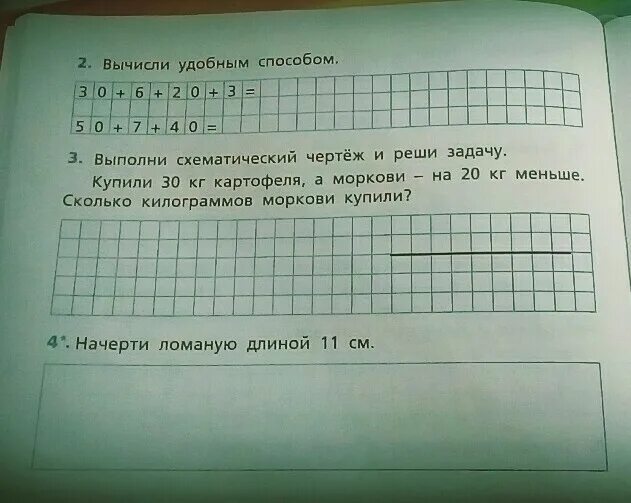 2. Вычисли удобным способом.
30+6+20+3=
50+7+40=
3. Выполни схематический чертёж и реши задачу.
Купили 30 кг картофеля, а моркови – на 20 кг меньше.
Сколько килограммов моркови купили?
4*. Начерти ломаную длиной 11 см.